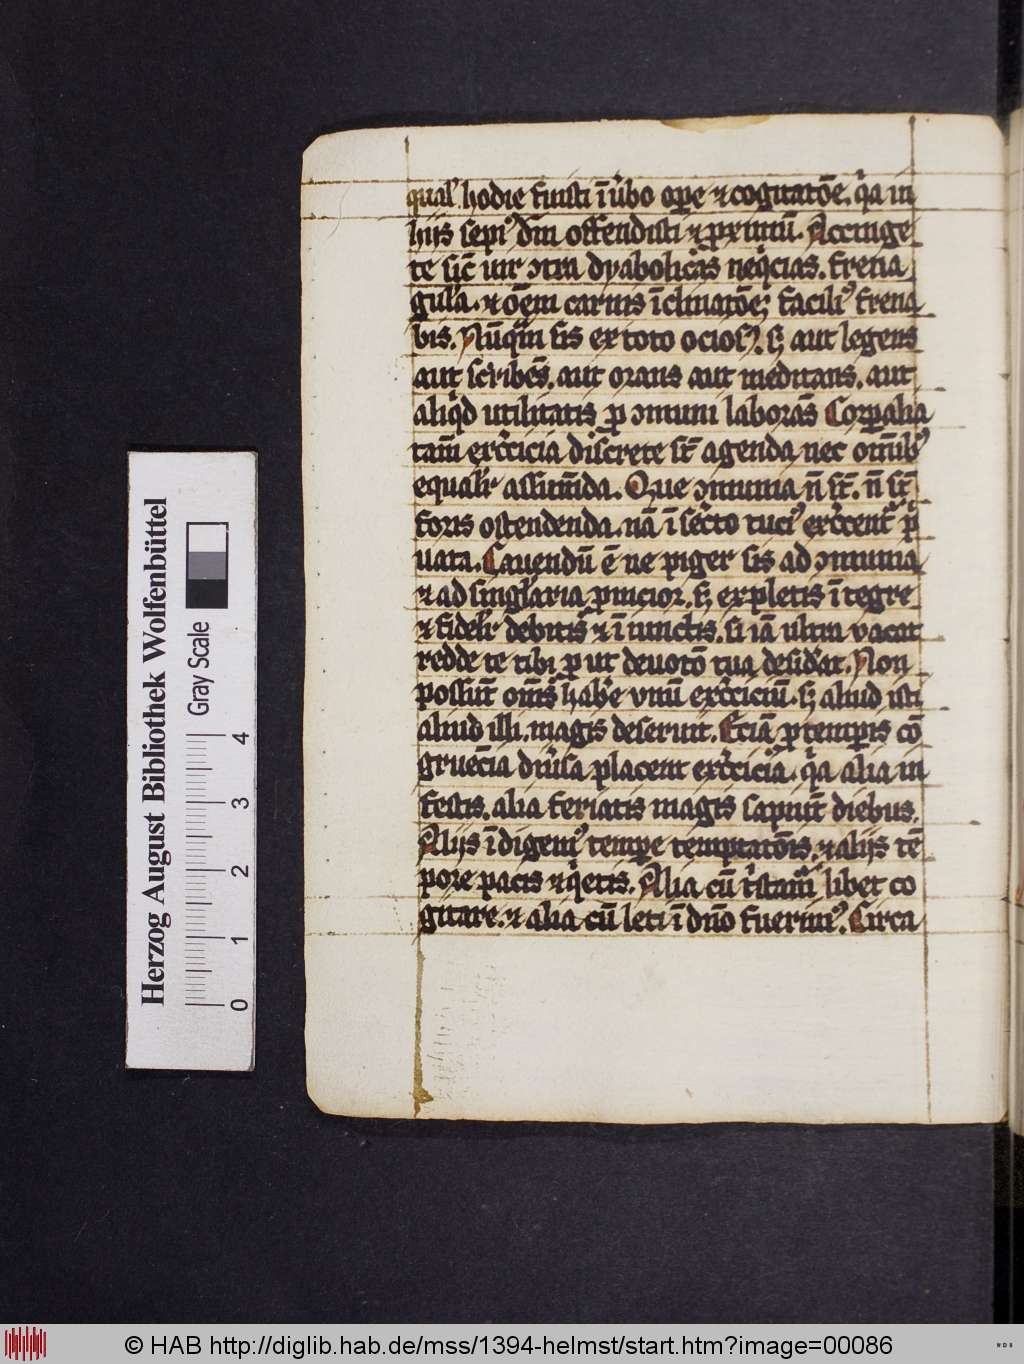 qualꝭ hodie fuisti ī ūbo oꝑe ⁊ cogitatōe. qͥa in
hijs sepiꝰ dm̄ offendisti ⁊ ꝓximū. Accinge
te sic̄ uir ↄtra dyabolicas neqͥcias. frena
gulā. ⁊ oēm carnis īclinatōeꝫ faciliꝰ frena
bis. Nūqͣm sis ex toto ociosꝰ. sꝫ aut legens
aut scribēs. aut orans aut meditans. aut
aliqͥd utilitatis ꝓ ↄmuni laborās Corꝑalia
tam̄ exercicia discrete sūt agenda nec om̄ibꝰ
equalr̄ assum̄da. Que ↄmunia n̄ sūt. n̄ sūt
foris ostendenda. nā ī secͤto tuciꝰ exercentᷣ pͥ
uata. Cauendū ē ne piger sis ad ↄmunia
⁊ ad singlaria ꝓmcior. sꝫ expletis ītegre
⁊ fidelr̄ debitis ⁊ īiunctis. si iā ultra vacat
redde te tibi ꝓ ut deuotō tua desid̾at. Non
possūt om̄s hab̄e vnū exerciciū. sꝫ aliud isti
aliud illi. magis deseruit. Eciā ꝓ temꝑis cō
gruēcia diūsa placent exercicia. qͥa alia in
festis. alia feriatis magis sapiūt diebus.
Alijs īdigemꝰ temꝑe temptatōis. ⁊ alijs tē
pore pacis ⁊ qͥetis. Alia cū tͥstamᷣ libet co
gitare. ⁊ alia cū leti ī dn̄o fuerimꝰ. Circa
Herzog August Bibliothek Wolfenbüttel
Gray Scale
0 1 2 3 4
© HAB http://diglib.hab.de/mss/1394-helmst/start.htm?image=00086